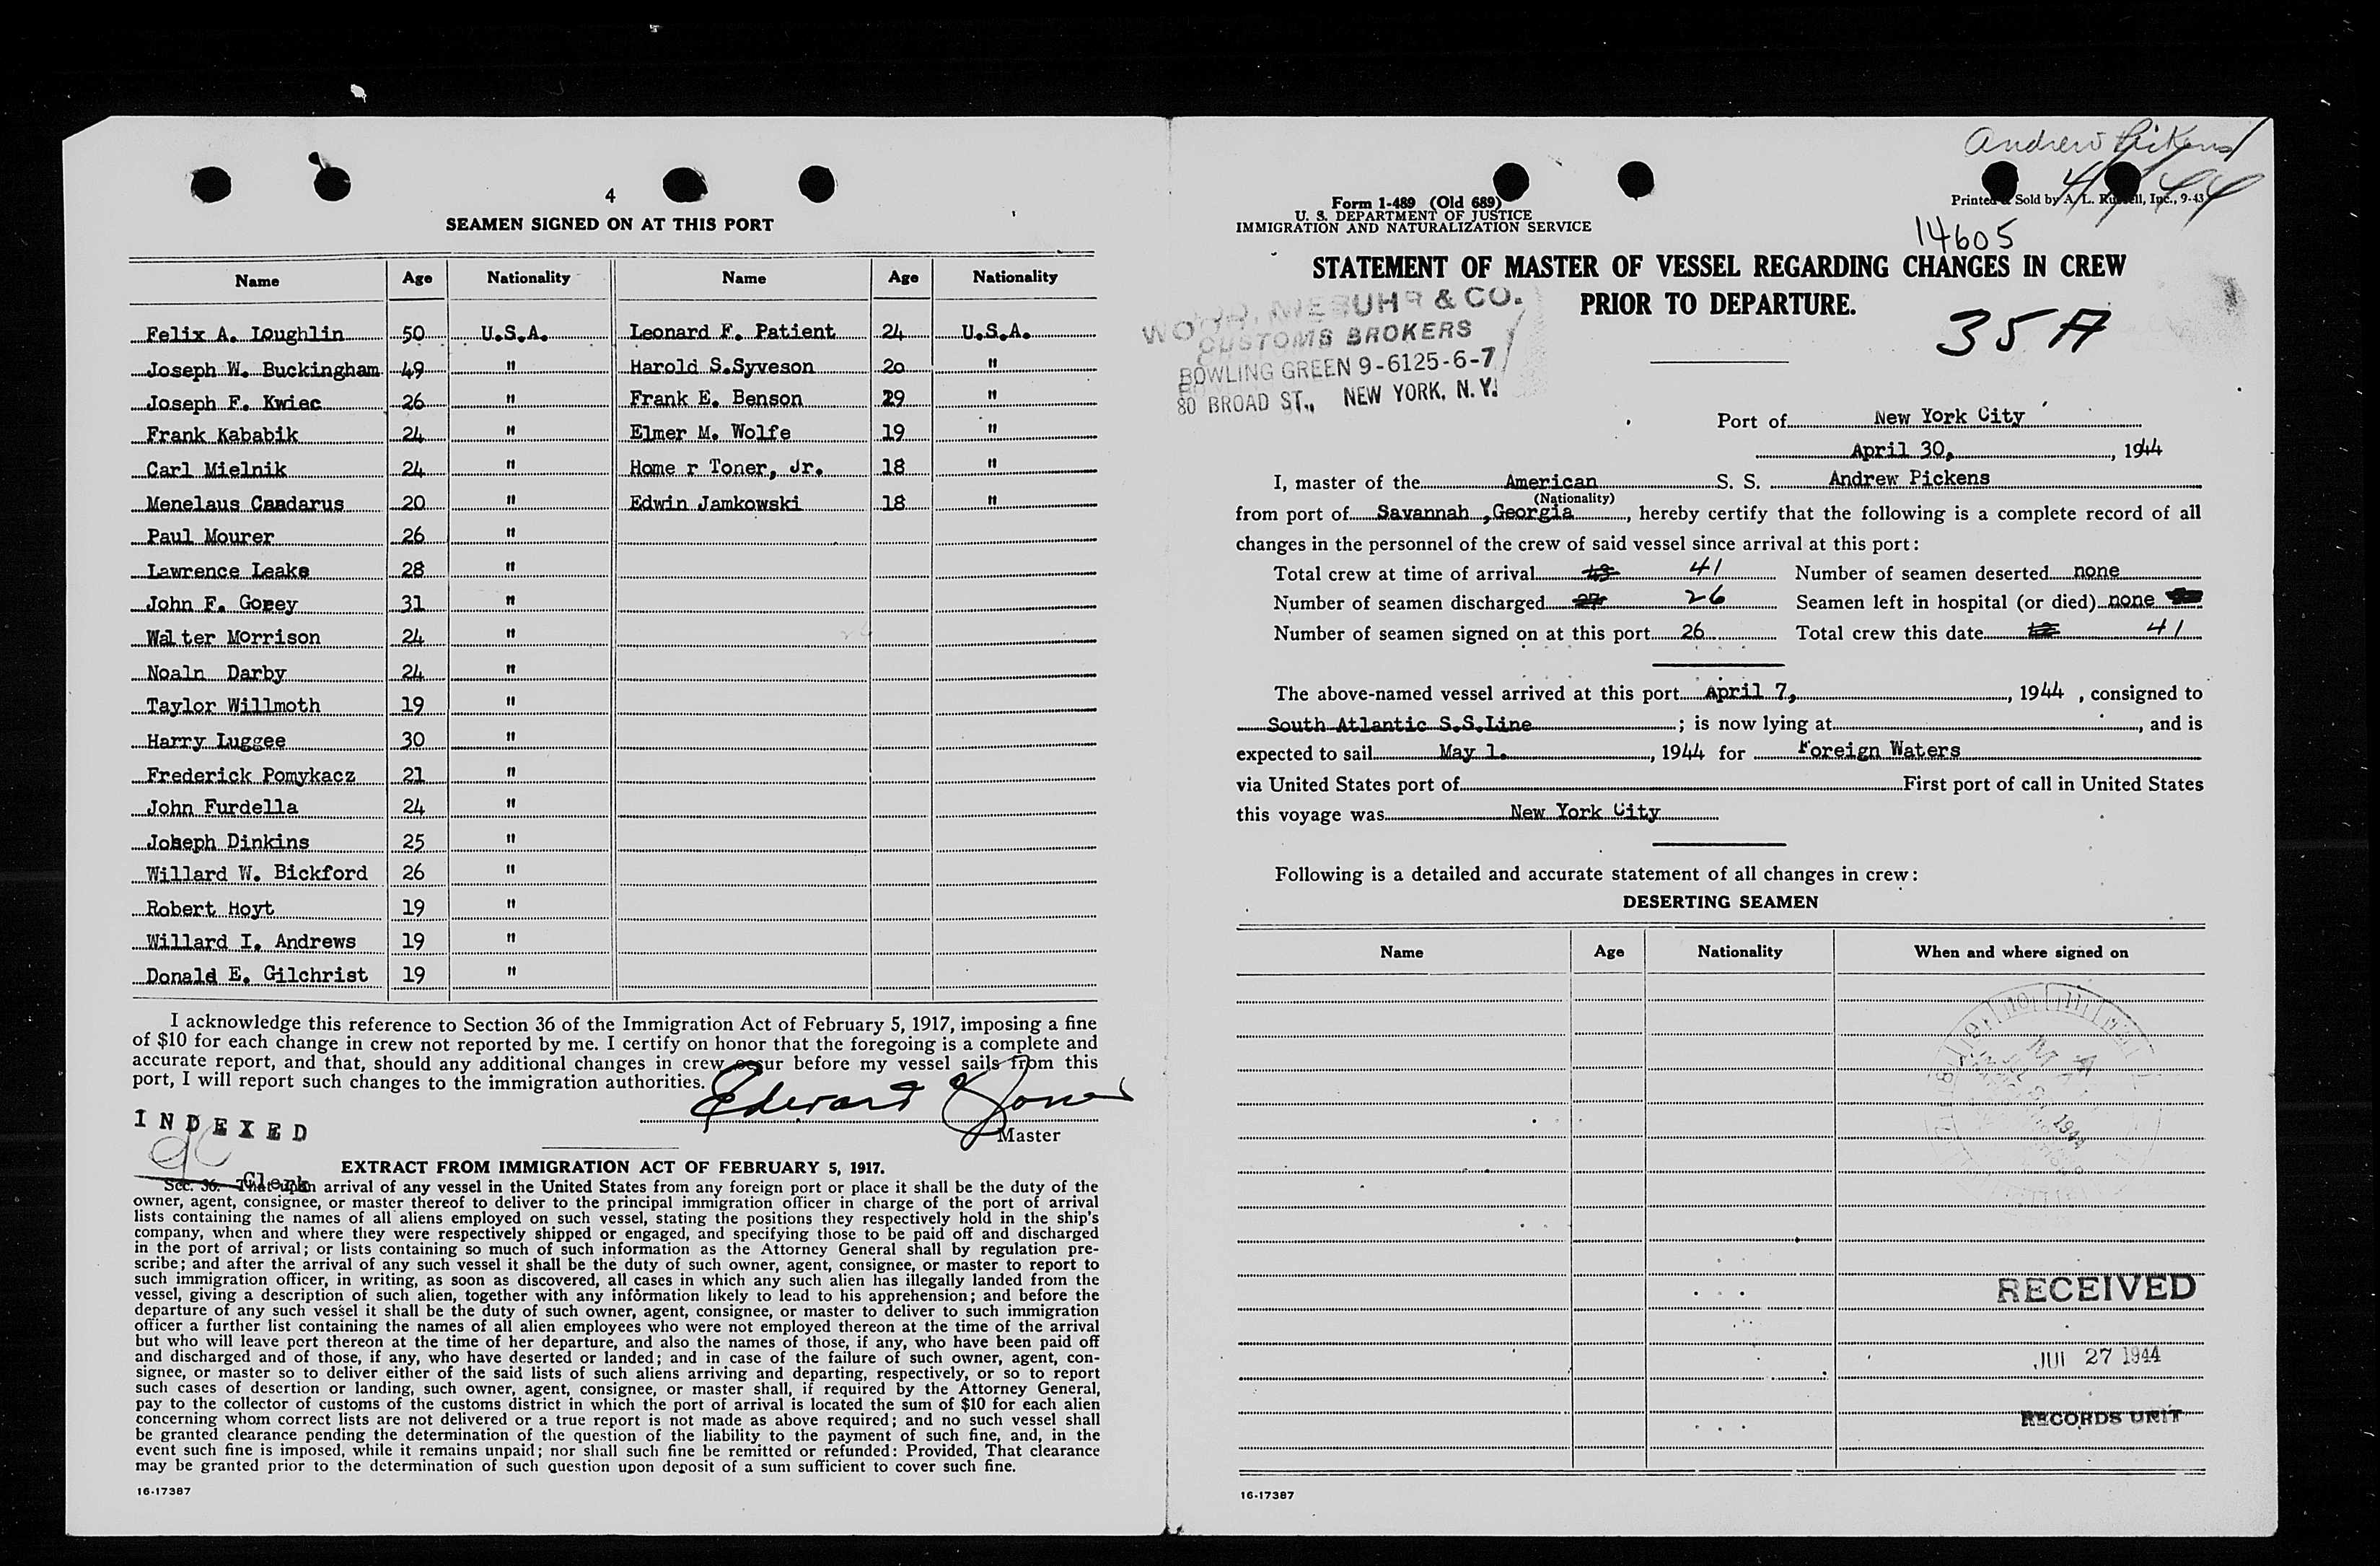 4
SEAMEN SIGNED ON AT THIS PORT
Name Age Nationality Name Age Nationality
Felix A. Loughlin 50 U.S.A. Leonard F. Patient 24 U.S.A.
Joseph W. Buckingham 49 " Harold S.Syveson 20 "
Joseph F. Kwiec 26 " Frank E. Benson 29 "
Frank Kababik 24 " Elmer M. Wolfe 19 "
Carl Mielnik 24 " Home r Toner, Jr. 18 "
Menelaus Candarus 20 " Edwin Jamkowski 18 "
Paul Mourer 26 "
Lawrence Leake 28 "
John F. Gorey 31 "
Walter Morrison 24 "
Noaln Darby 24 "
Taylor Willmoth 19 "
Harry Luggee 30 "
Frederick Pomykacz 21 "
John Furdella 24 "
Joseph Dinkins 25 "
Willard W. Bickford 26 "
Robert Hoyt 19 "
Willard I. Andrews 19 "
Donald E. Gilchrist 19 "
I acknowledge this reference to Section 36 of the Immigration Act of February 5, 1917, imposing a fine
of $10 for each change in crew not reported by me. I certify on honor that the foregoing is a complete and
accurate report, and that, should any additional changes in crew occur before my vessel sails from this
port, I will report such changes to the immigration authorities.
Edward Jones
Master
INDEXED
Clerk
EXTRACT FROM IMMIGRATION ACT OF FEBRUARY 5, 1917.
Sec. 36. That upon arrival of any vessel in the United States from any foreign port or place it shall be the duty of the
owner, agent, consignee, or master thereof to deliver to the principal immigration officer in charge of the port of arrival
lists containing the names of all aliens employed on such vessel, stating the positions they respectively hold in the ship's
company, when and where they were respectively shipped or engaged, and specifying those to be paid off and discharged
in the port of arrival; or lists containing so much of such information as the Attorney General shall by regulation pre-
scribe; and after the arrival of any such vessel it shall be the duty of such owner, agent, consignee, or master to report to
such immigration officer, in writing, as soon as discovered, all cases in which any such alien has illegally landed from the
vessel, giving a description of such alien, together with any information likely to lead to his apprehension; and before the
departure of any such vessel it shall be the duty of such owner, agent, consignee, or master to deliver to such immigration
officer a further list containing the names of all alien employees who were not employed thereon at the time of the arrival
but who will leave port thereon at the time of her departure, and also the names of those, if any, who have been paid off
and discharged and of those, if any, who have deserted or landed; and in case of the failure of such owner, agent, con-
signee, or master so to deliver either of the said lists of such aliens arriving and departing, respectively, or so to report
such cases of desertion or landing, such owner, agent, consignee, or master shall, if required by the Attorney General,
pay to the collector of customs of the customs district in which the port of arrival is located the sum of $10 for each alien
concerning whom correct lists are not delivered or a true report is not made as above required; and no such vessel shall
be granted clearance pending the determination of the question of the liability to the payment of such fine, and, in the
event such fine is imposed, while it remains unpaid; nor shall such fine be remitted or refunded: Provided, That clearance
may be granted prior to the determination of such question upon deposit of a sum sufficient to cover such fine.
16-17387
Andrew Pickens
4/7/44
Form I-489 (Old 689)
U. S. DEPARTMENT OF JUSTICE
IMMIGRATION AND NATURALIZATION SERVICE
Printed & Sold by A. L. Russell, Inc., 9-43
14605
STATEMENT OF MASTER OF VESSEL REGARDING CHANGES IN CREW
PRIOR TO DEPARTURE.
35 A
& CO.
CUSTOMS BROKERS
BOWLING GREEN 9-6125-6-7
80 BROAD ST., NEW YORK, N.Y.
Port of New York City
April 30, , 1944
I, master of the American S. S. Andrew Pickens
(Nationality)
from port of Savannah ,Georgia , hereby certify that the following is a complete record of all
changes in the personnel of the crew of said vessel since arrival at this port:
Total crew at time of arrival 41 Number of seamen deserted none
Number of seamen discharged 26 Seamen left in hospital (or died) none
Number of seamen signed on at this port 26 Total crew this date 41
The above-named vessel arrived at this port April 7, , 1944 , consigned to
South Atlantic S.S.Line ; is now lying at , and is
expected to sail May 1. , 1944 for Foreign Waters
via United States port of First port of call in United States
this voyage was New York City
Following is a detailed and accurate statement of all changes in crew:
DESERTING SEAMEN
Name Age Nationality When and where signed on
1944
RECEIVED
JUL 27 1944
RECORDS UNIT
16-17387